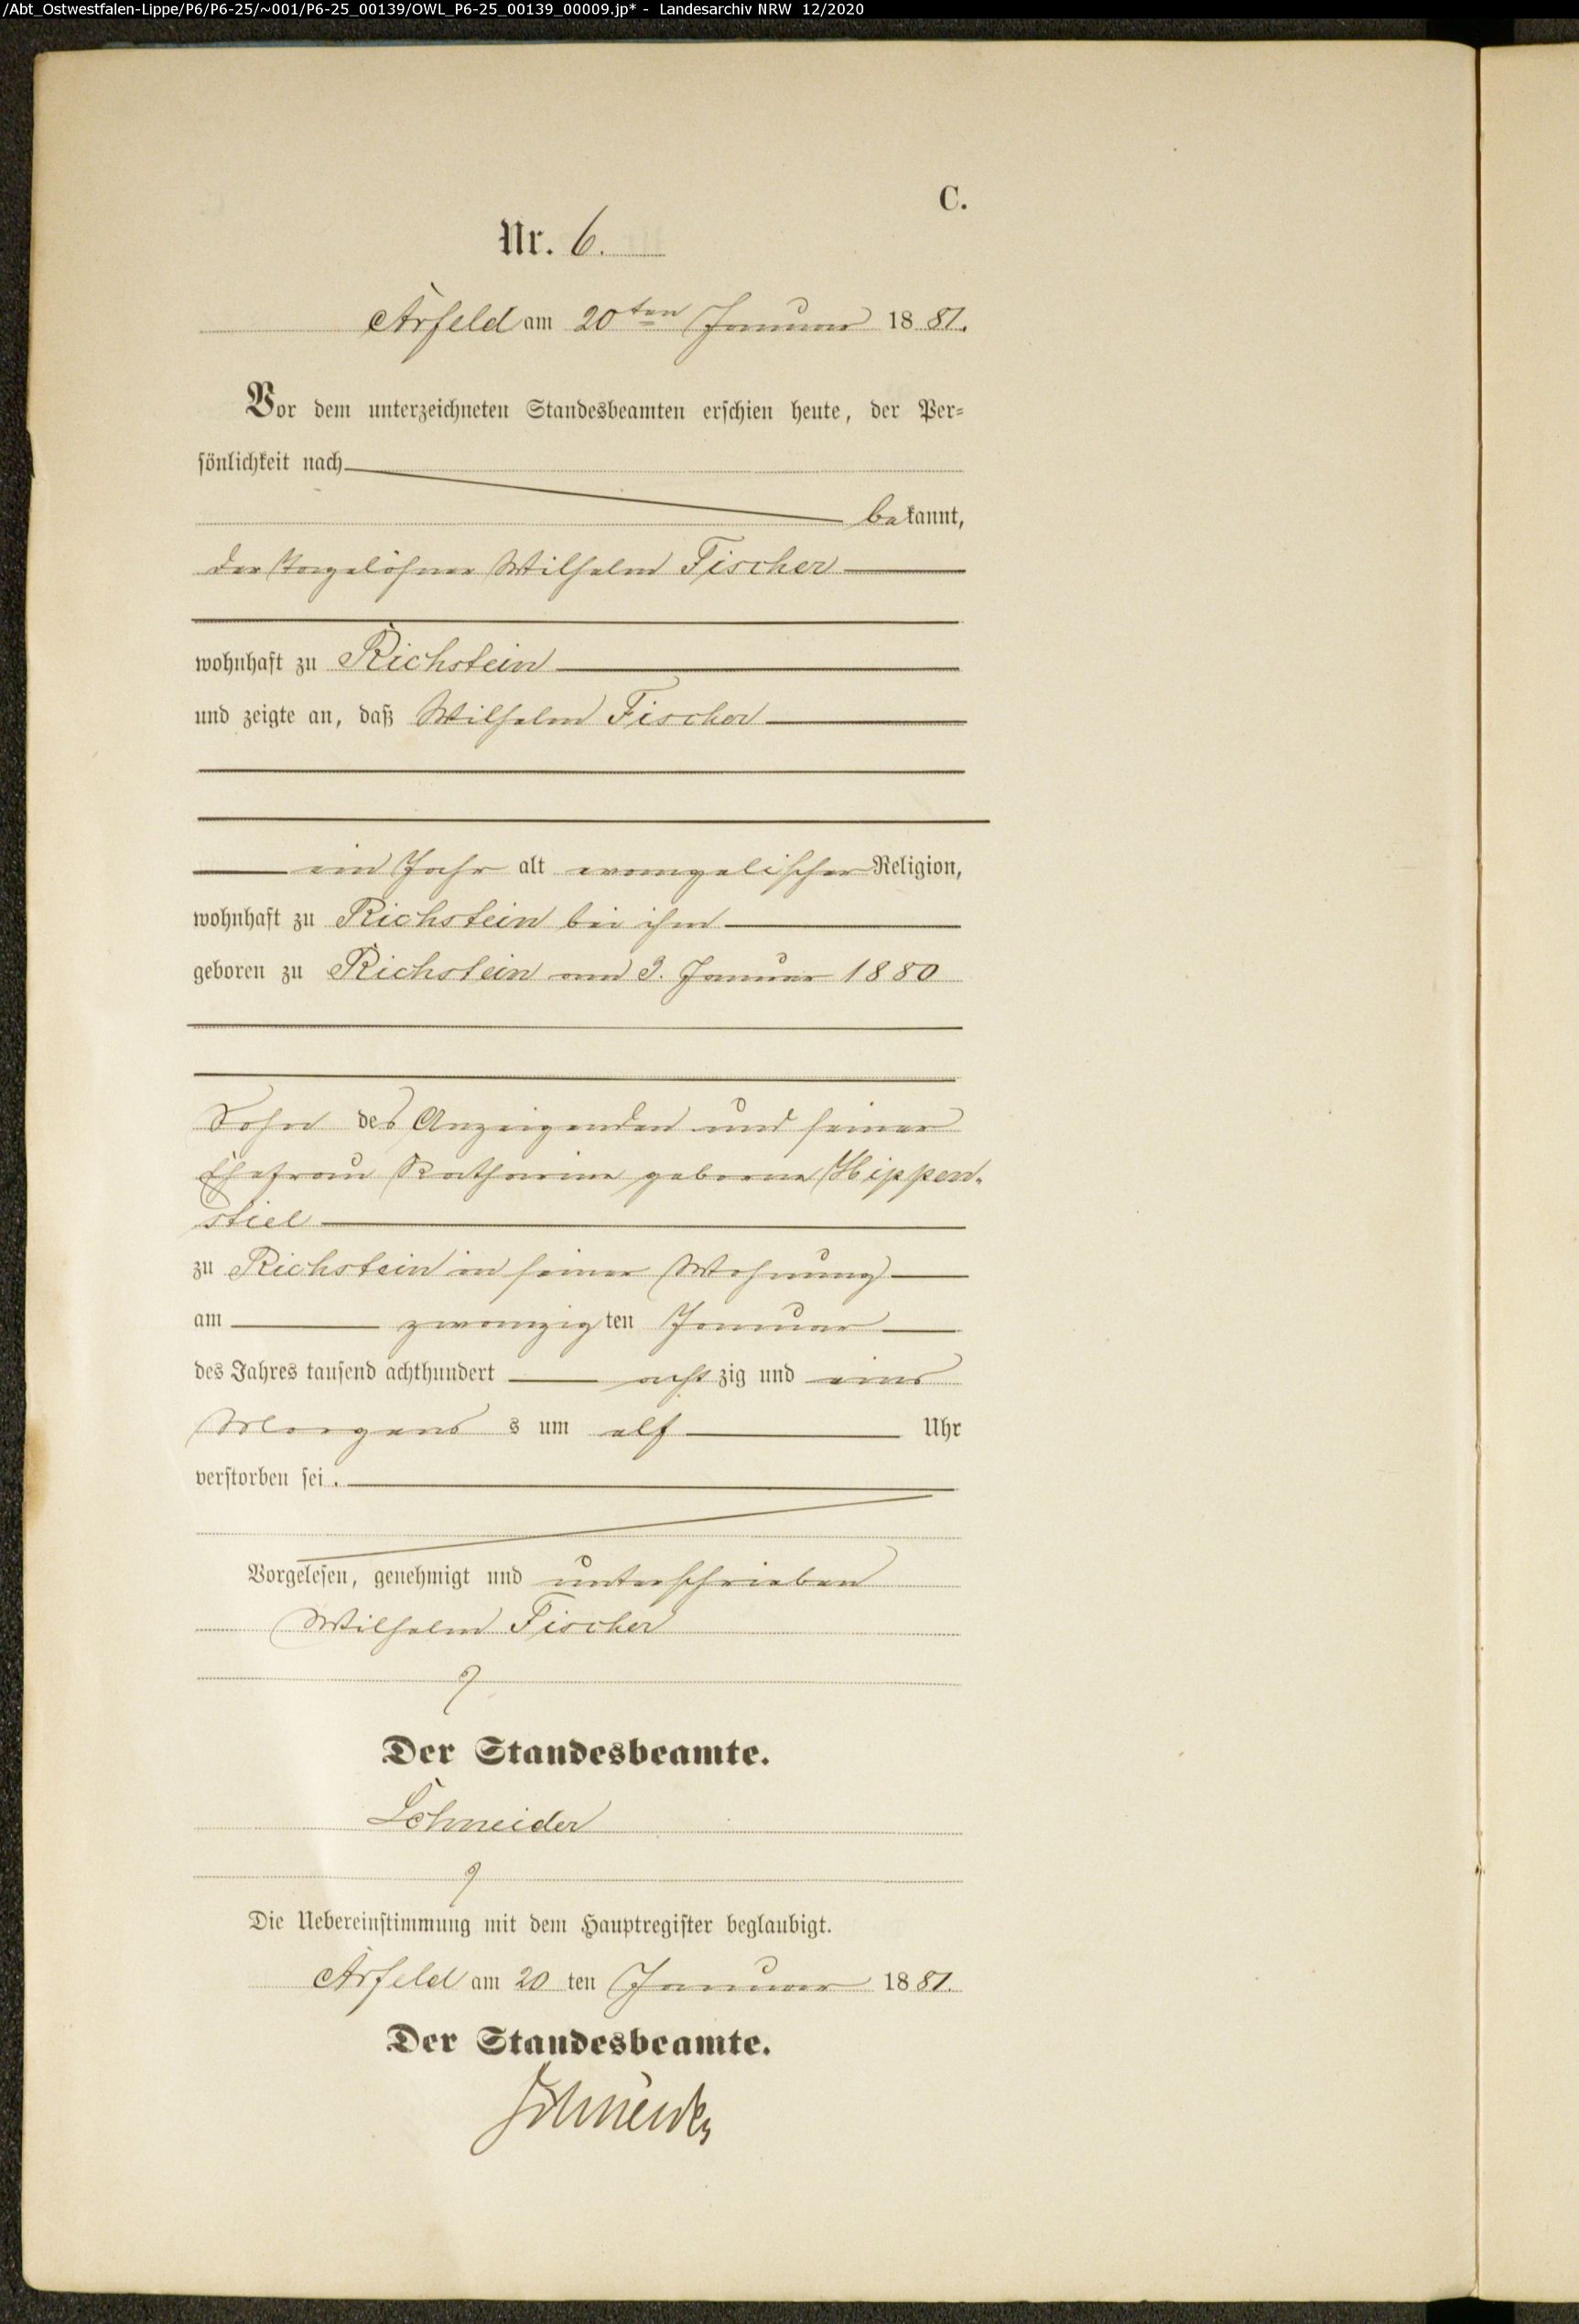 /Abt_Ostwestfalen-Lippe/P6/P6-25/~001/P6-25_00139/OWL_P6-25_00139_00009.jp* - Landesarchiv NRW 12/2020
C.
Nr. 6.
Arfeld am 20ten Januar 1881.
Vor dem unterzeichneten Standesbeamten erschien heute, der Per=
sönlichkeit nach
bekannt,
der Tagelöhner Wilhelm Fischer
wohnhaft zu Richstein
und zeigte an, daß Wilhelm Fischer
ein Jahr alt evangelischer Religion,
wohnhaft zu Richstein bei ihm
geboren zu Richstein am 3. Januar 1880
Sohn des Anzeigenden und seiner
Ehefrau Katharine geborne Hippen-
stiel
zu Richstein in seiner Wohnung
am zwanzigten Januar
des Jahres tausend achthundert achtzig und eins
Morgens s um elf Uhr
verstorben sei.
Vorgelesen, genehmigt und unterschrieben
Wilhelm Fischer
Der Standesbeamte.
Schneider
Die Uebereinstimmung mit dem Hauptregister beglaubigt.
Arfeld am 20 ten Januar 1881.
Der Standesbeamte.
Schneider